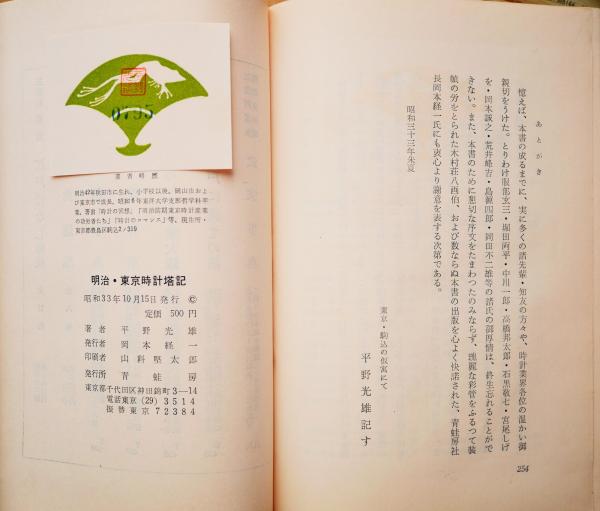 あとがき
憶えば、本書の成るまでに、実に多くの諸先輩・知友の方々や、時計業界各位の温かい御
親切をうけた。とりわけ服部玄三・堀田両平・中川一郎・高橋邦太郎・石黒敬七・宮尾しげ
を・岡本誠之・荒井峰吉・島源四郎・岡田不二雄等の諸氏の御厚情は、終生忘れることがで
きない。また、本書のために懇切な序文をたまわつたのみならず、瑰麗な彩管をふるつて装
幀の労をとられた木村荘八画伯、および数ならぬ本書の出版を心よく快諾された、青蛙房社
長岡本経一氏にも衷心より謝意を表する次第である。
昭和三十三年朱夏
東京・駒込の仮寓にて
平野光雄記す
254
0795
著者略歴
明治42年秋田市に生れ、小学校以後、岡山市およ
び東京市で成長。昭和6年東洋大学支那哲学科卒
業。著書「時計の回想」「明治前期東京時計産業
の功労者たち」「時計のロマンス」等。現住所・
東京都豊島区駒込2ノ319
明治・東京時計塔記
昭和33年10月15日発行 ©
定価 500円
著者 平野光雄
発行者 岡本経一
印刷者 山科堅太郎
発行所 青蛙房
東京都千代田区神田錦町3—14
電話東京(29)3514
振替東京72384